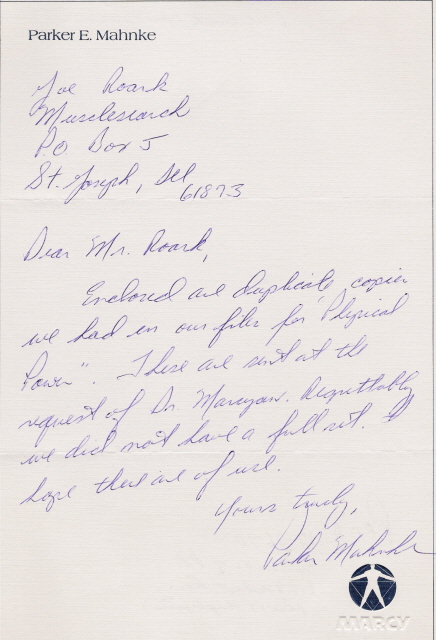 Parker E. Mahnke
Joe Roark
Musclesearch
P.O. Box 5
St. Joseph, Ill
61873
Dear Mr. Roark,
Enclosed are duplicate copies
we had in our files for "Physical
Power". These are sent at the
request of Dr. Marcyan. Regrettably
we did not have a full set. I
hope these are of use.
Yours truly,
Parker Mahnke
MARCY